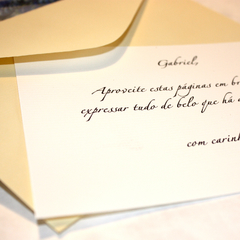 Gabriel,
Aproveite estas páginas em
expressar tudo de belo que há
com